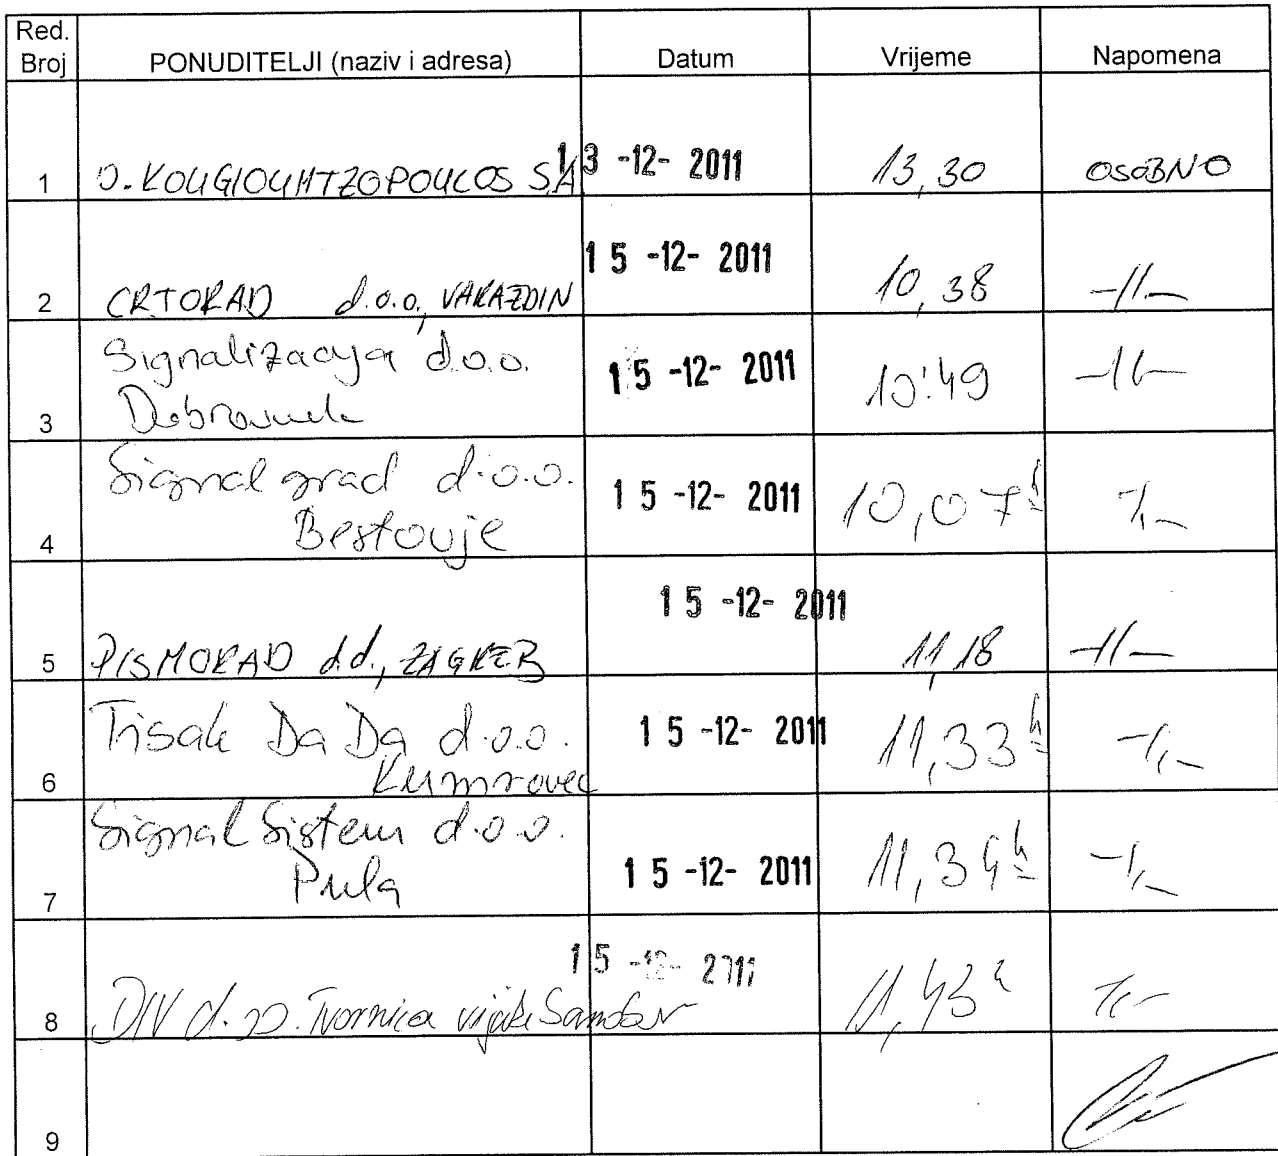 Red. Broj PONUDITELJI (naziv i adresa) Datum Vrijeme Napomena
1 O. KOUGIOUMTZOPOULOS SA 13 -12- 2011 13,30 OSOBNO
2 CRTORAD d.o.o., VARAZDIN 15 -12- 2011 10,38 -||-
Signalizacija d.o.o.
3 15 -12- 2011 10:49 -||-
Signal grad d.o.o.
4 Bestovje 15 -12- 2011 10,07h -||-
5 PISMORAD d.d., ZAGREB 15 -12- 2011 11,18 -||-
Tisak Da Da d.o.o.
6 Kumrovec 15 -12- 2011 11,33h -||-
Signal Sistem d.o.o.
7 Pula 15 -12- 2011 11,34h -||-
8 DIV d.o.o. Tvornica vijaka Samobor 15 -12- 2011 11,43h -||-
9